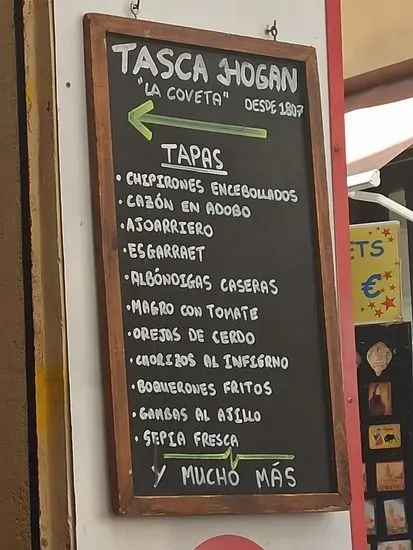 TASCA HOGAN
"LA COVETA" DESDE 1807
TAPAS
• CHIPIRONES ENCEBOLLADOS
• CAZÓN EN ADOBO
• AJOARRIERO
• ESGARRAET
• ALBÓNDIGAS CASERAS
• MAGRO CON TOMATE
• OREJAS DE CERDO
• CHORIZOS AL INFIERNO
• BOQUERONES FRITOS
• GAMBAS AL AJILLO
• SEPIA FRESCA
Y MUCHO MÁS
ETS
€